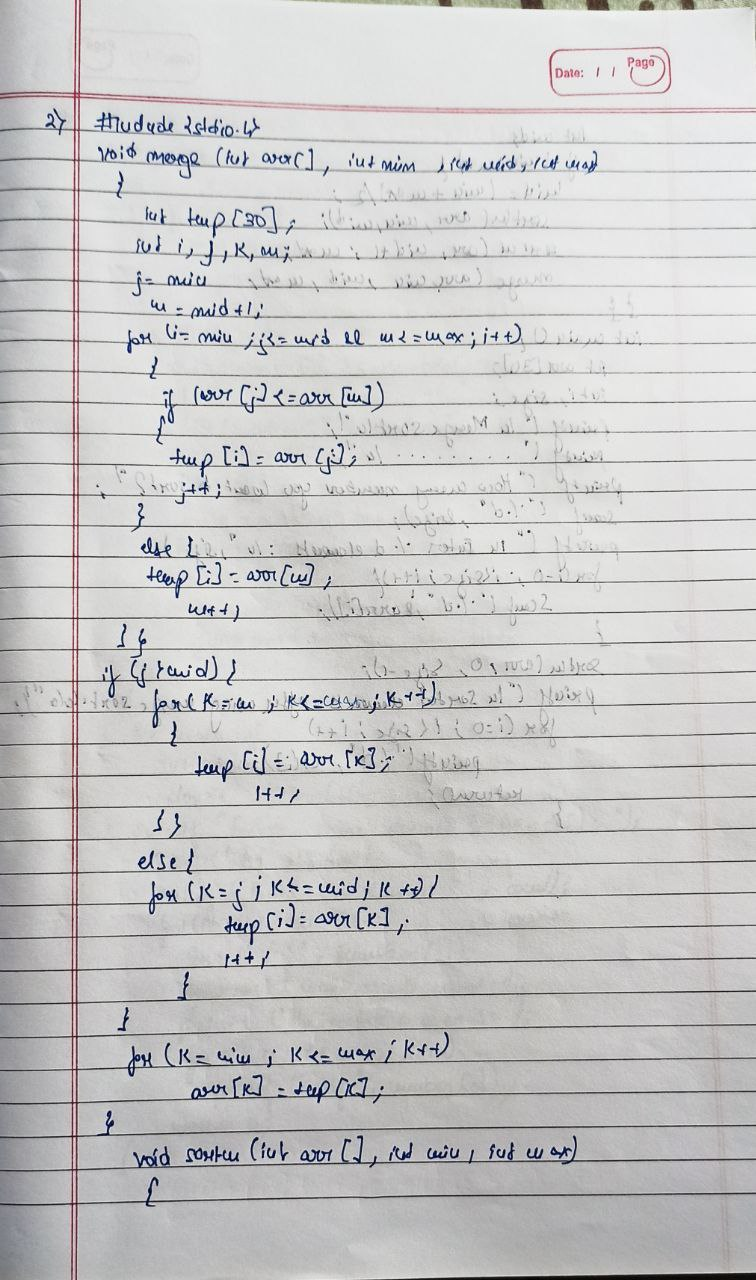 Date: / / Page
2) #include {stdio.h}
void merge (int arr[], int min, int mid, int max)
{
int tmp [30];
int i, j, K, m;
j= min
m = mid +1;
for (i= min ; j<= mid && m<=max ; i++)
{
if (arr [j] <= arr [m])
{
tmp [i] = arr [j];
j++;
}
else {
temp [i] = arr [m];
m++;
} }
if (j > mid) {
for( K=m ; K<=max ; K++)
{
temp [i] = arr [K];
i++;
} }
else {
for (K=j ; K<=mid ; K++) {
tmp [i] = arr [K];
i++;
}
}
for (K= min ; K<= max ; K++)
arr[K] = tmp [K];
}
void sortm (int arr [], int min, int max)
{